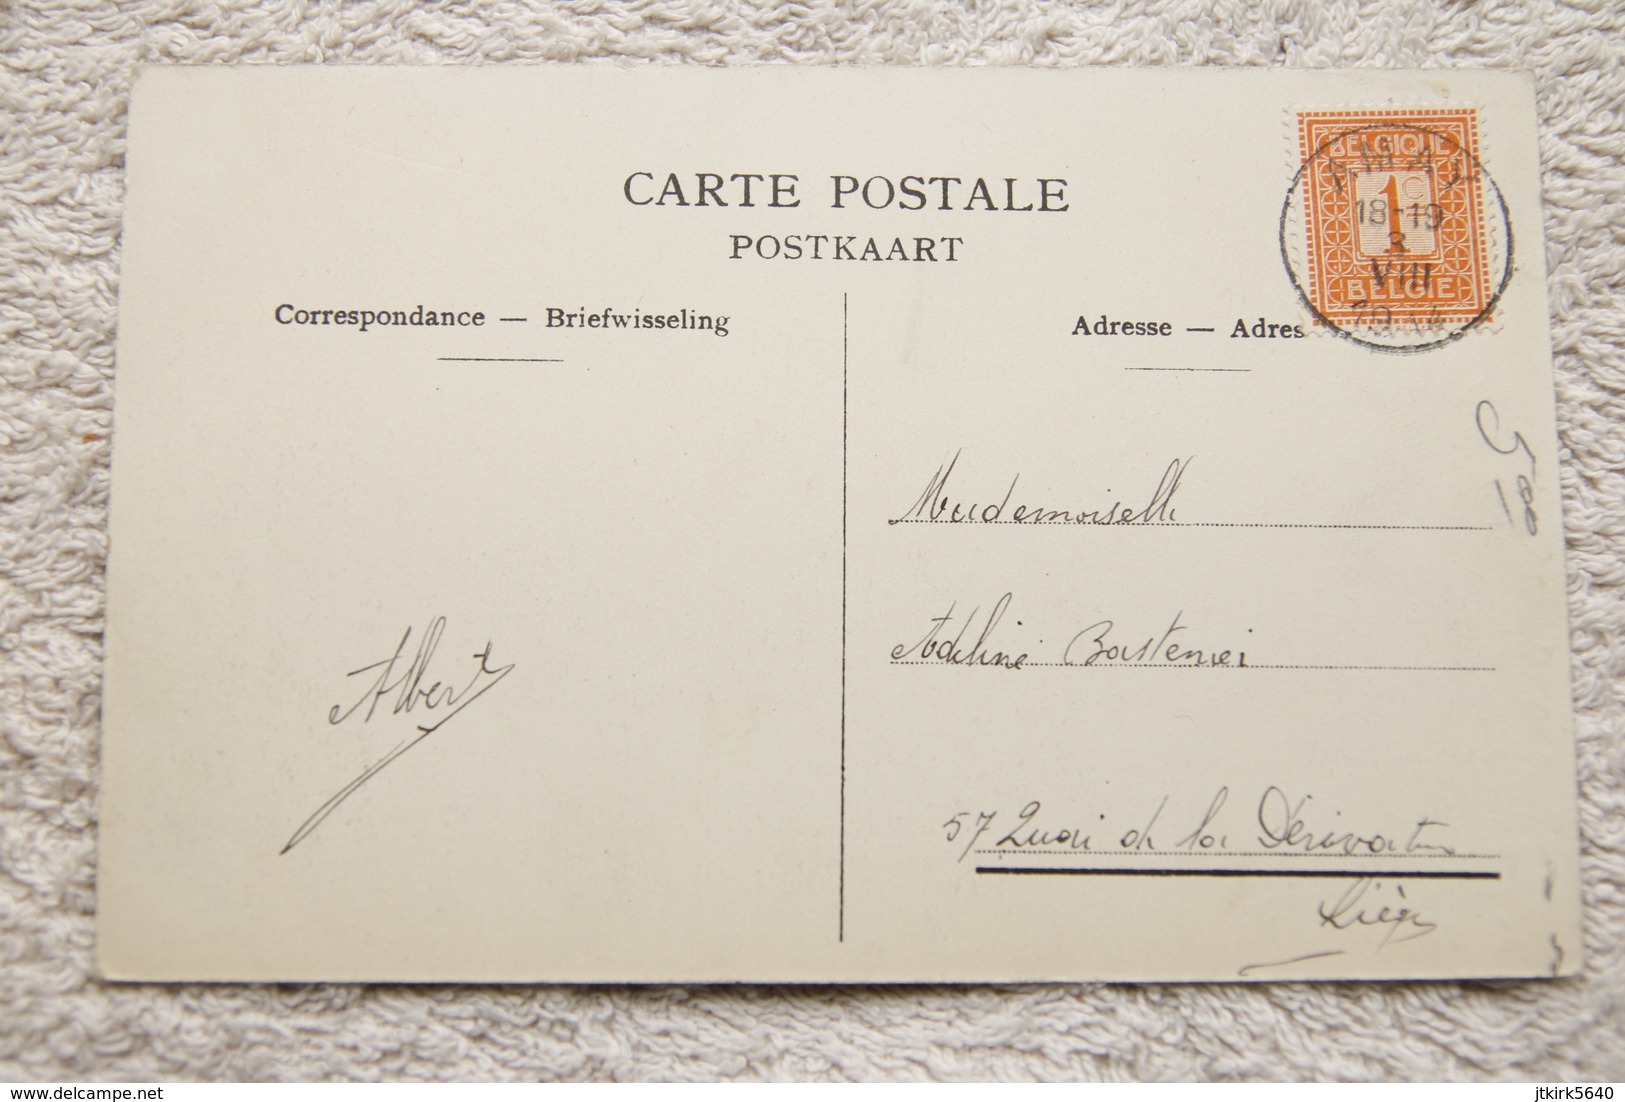 CARTE POSTALE
POSTKAART
Correspondance — Briefwisseling
Adresse — Adres
BELGIQUE
1c
BELGIË
AMAY
18-19
3
VIII
1914
500
Mademoiselle
Adeline
57 Quai de la Dérivation
Liège
Albert
delcampe.net
jtkirk5640